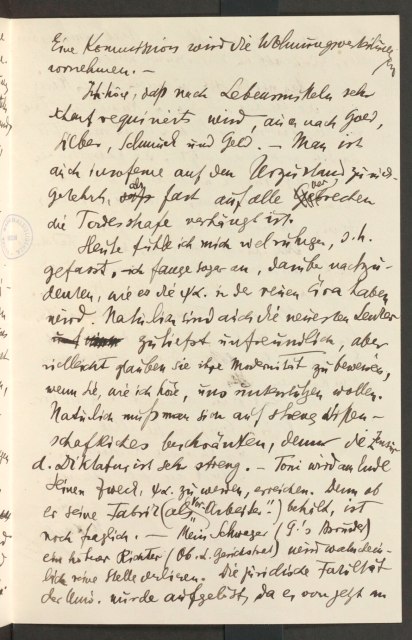 Eine Kommission wird die Wohnungsverteilung
vornehmen. –
Ich höre, daß nach Lebensmitteln sehr
scharf requiriert wird, auch nach Gold,
Silber, Schmuck und Geld. – Man ist
auch insoferne auf den Urzustand zurück-
gekehrt, als fast auf alle Verbrechen
die Todesstrafe verhängt ist.
Heute fühle ich mich wohl ruhiger, d. h.
gefasst, ich fange sogar an, darüber nachzu-
denken, wie es die ψα. in der neuen Ära haben
wird. Natürlich sind auch die neuesten Denker
zutiefst unfreundlich, aber
vielleicht glauben sie ihre Modernität zu beweisen,
wenn sie, wie ich höre, uns unterstützen wollen.
Natürlich muß man sich auf streng Wissen-
schaftliches beschränken, denn die Zensur
d. Diktatur ist sehr streng. – Toni wird am Ende
seinen Zweck, ψα. zu werden, erreichen. Denn ob
er seine Fabrik (als Vor-Arbeiter!) behält, ist
noch fraglich. – Mein Schwager (G.'s Bruder)
ein hoher Richter (Ob. d. Gerichtshof) wird wahrschein-
lich seine Stelle verlieren. Die juridische Fakultät
der Univ. wurde aufgelöst, da es von jetzt an